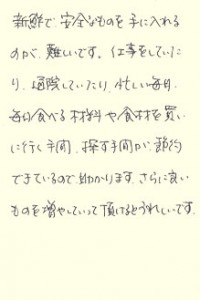 新鮮で安全なものを手に入れる
のが、難しいです。仕事をしていた
り、通院していたり、忙しい毎日。
毎日食べる材料や食材を買い
に行く手間、探す手間が、節約
できているので助かります。さらに良い
ものを増やしていって頂けるとうれしいです。